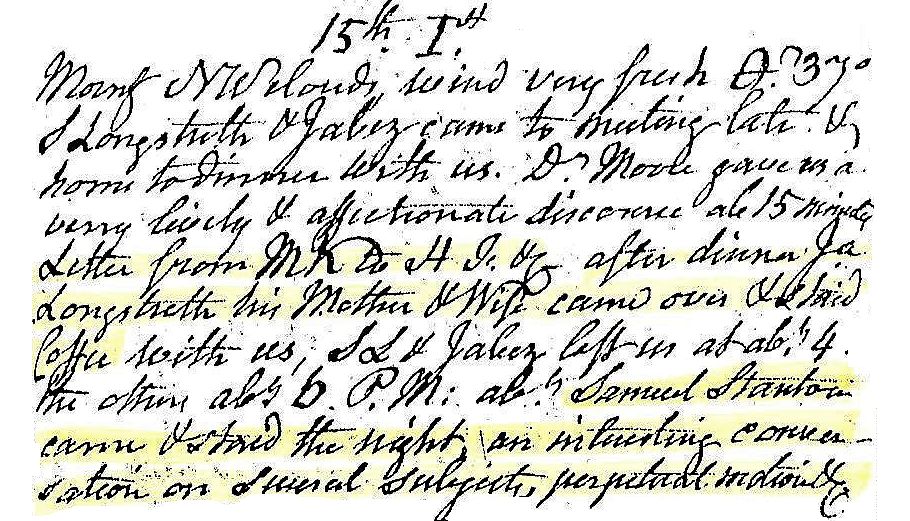 15th. I.st
Morng NW clouds, wind very fresh Ar. 37°
S Longstreth & Jabez came to meeting late. &
home to dinner with us. Dr. Moore gave us a
very lively & affectionate discourse ab 15 minuts
Letter from MK to H J. &c after dinner
Longstreth his Mother & Wife came over & staid
Coffee with us, S L & Jabez left us at abt 4.
the others abt 6. P. M: abt Samuel Stanton
came & staid the night, an interesting conver-
sation on several subjects, perpetual motion &c